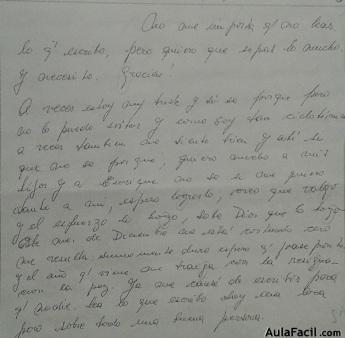 no me importa q' no leas
lo q' escribo, pero quiero que sepas lo mucho
y necesito. Gracias!
A veces estoy muy triste y sé porque pero
no lo puedo evitar y como soy tan ciclotímica
a veces tambien me siento bien y ahí
que no se porque, quiero mucho a mis
hijos y a Enrique no se si me quiero
tanto a mi, espero lograrlo, creo que valgo
y el esfuerzo lo hago, sabe Dios que lo hago
este mes de Diciembre me está costando
me resulta sumamente duro espero q' pase pronto
y el año q' viene me traiga con la resigna-
cion la paz. Ya me cansé de escribir para
q' nadie lea lo que escribo soy una loca
pero sobre todo una buena persona.
AulaFacil.com